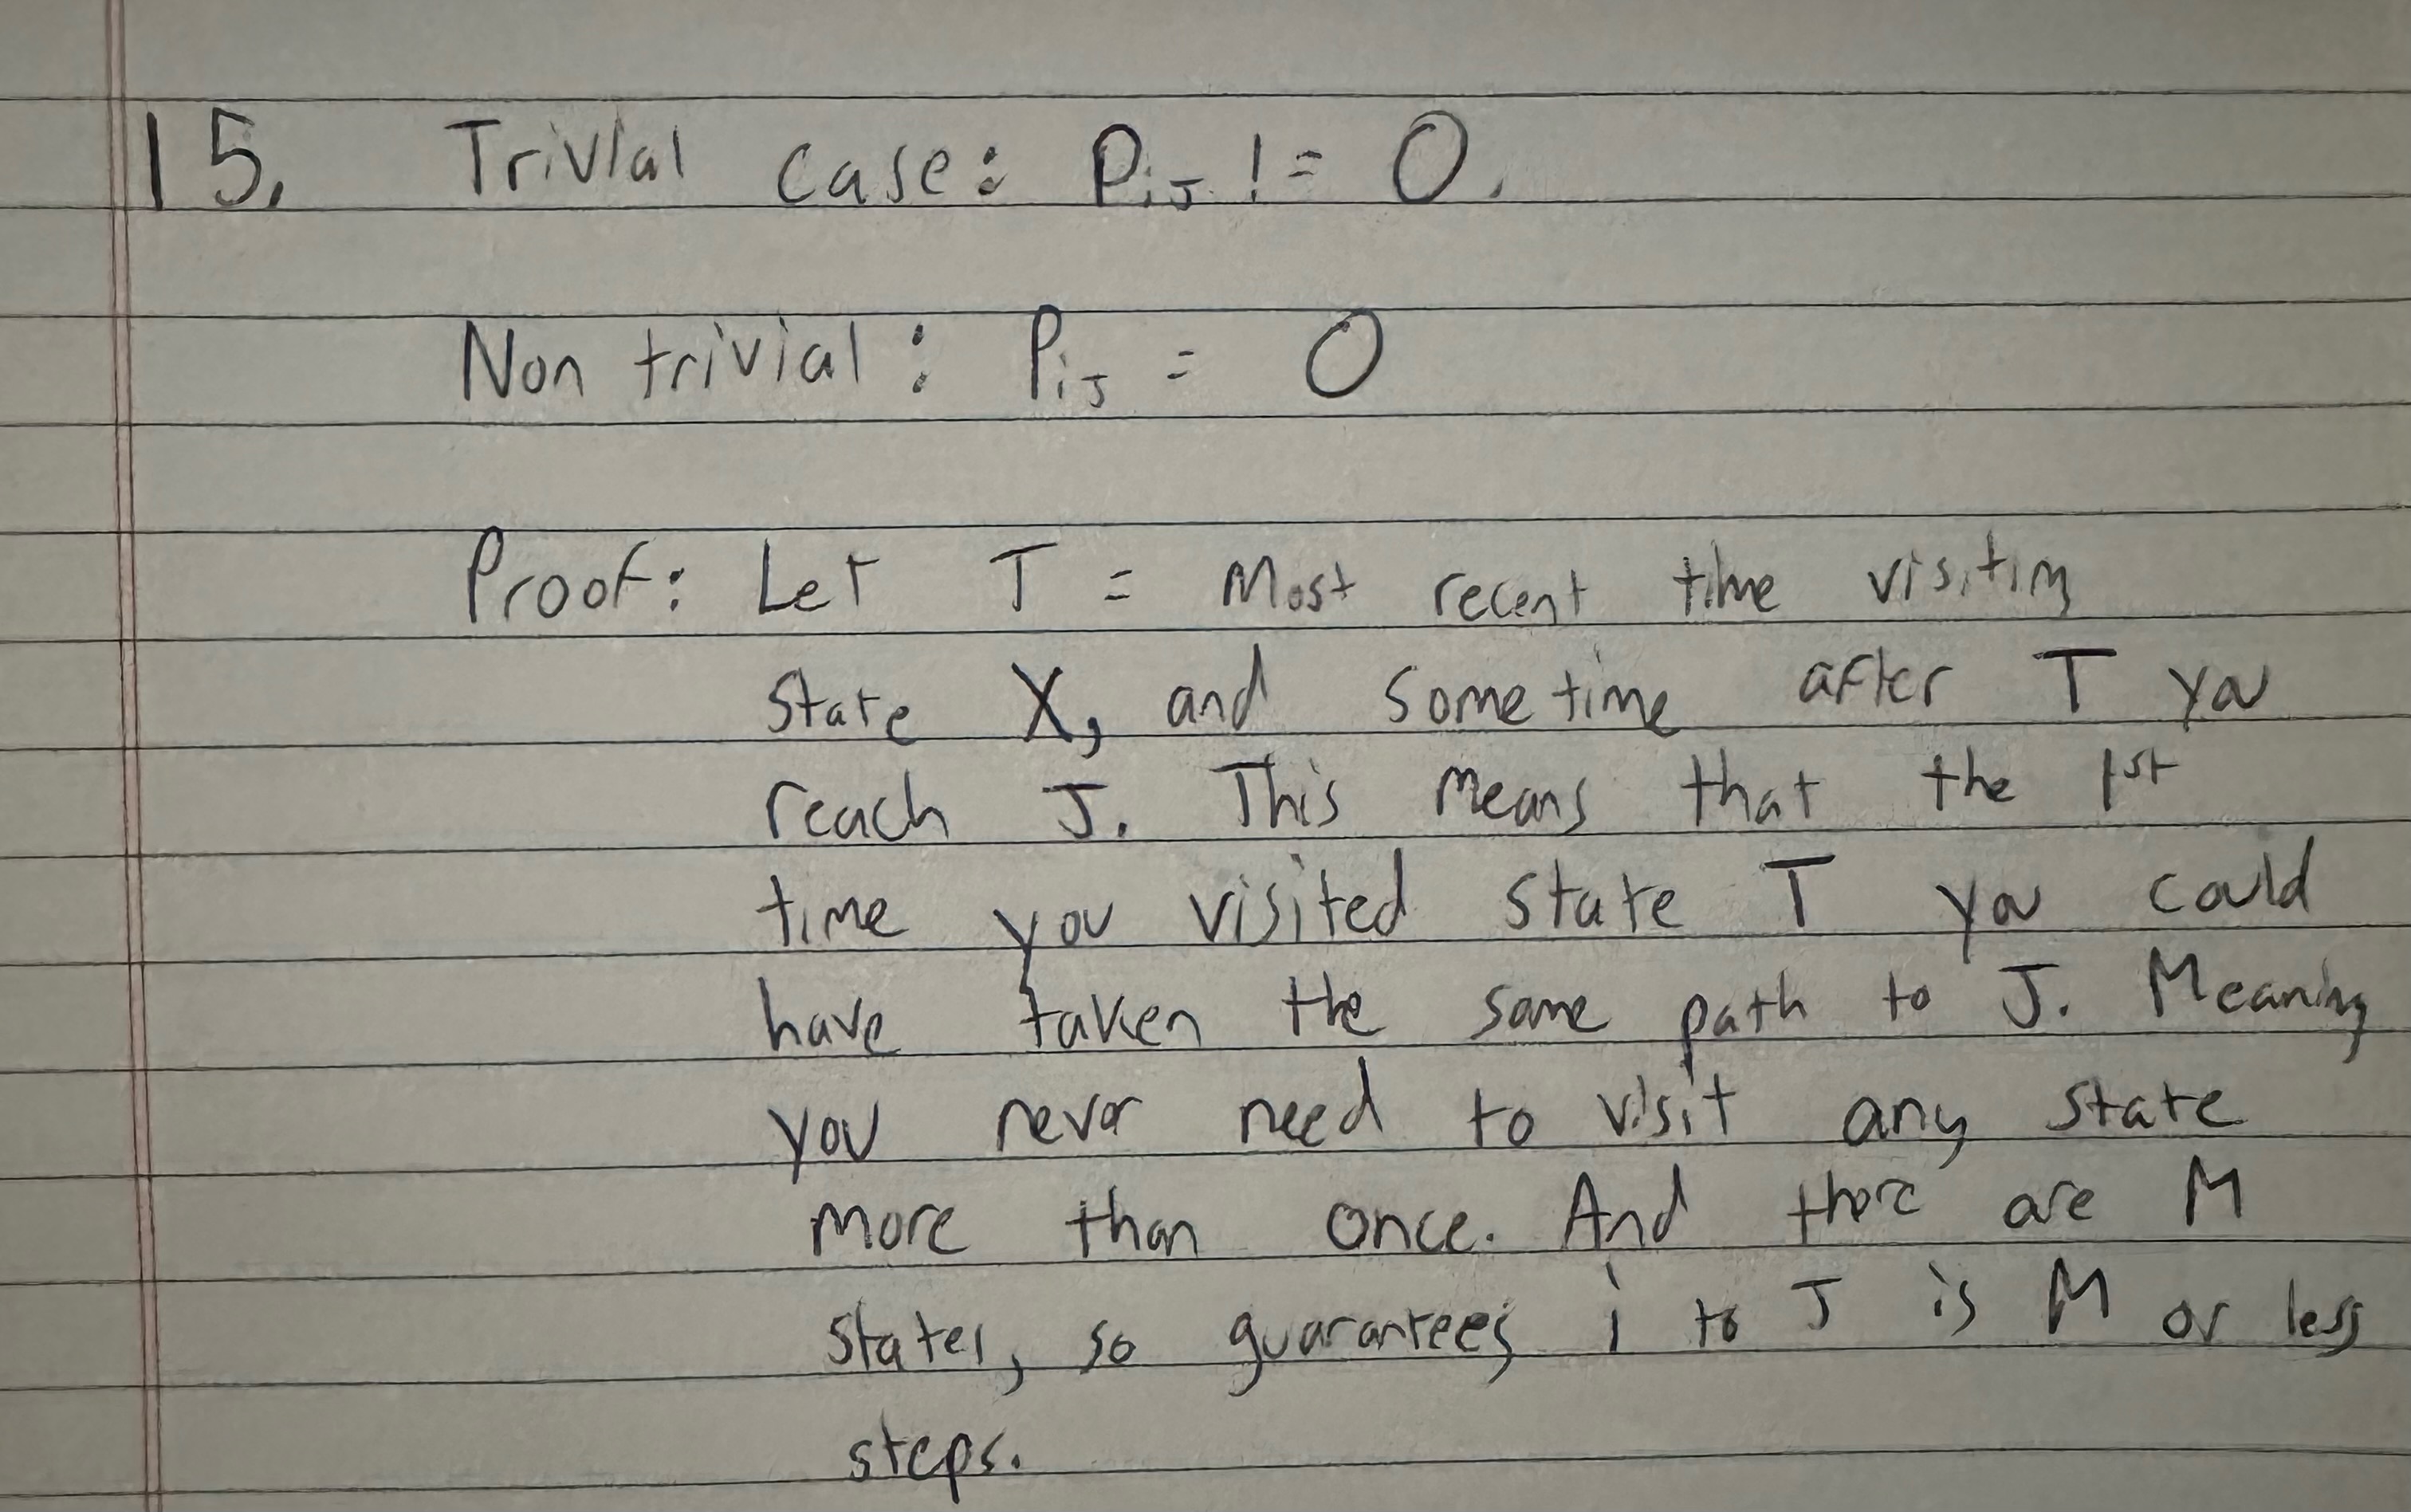 15. Trivial case: Pij != 0.
Non trivial: Pij = 0
Proof: Let T = Most recent time visiting
state X, and sometime after T you
reach J. This means that the 1st
time you visited state T you could
have taken the same path to J. Meaning
you never need to visit any state
more than once. And there are M
states, so guarantees i to J is M or less
steps.